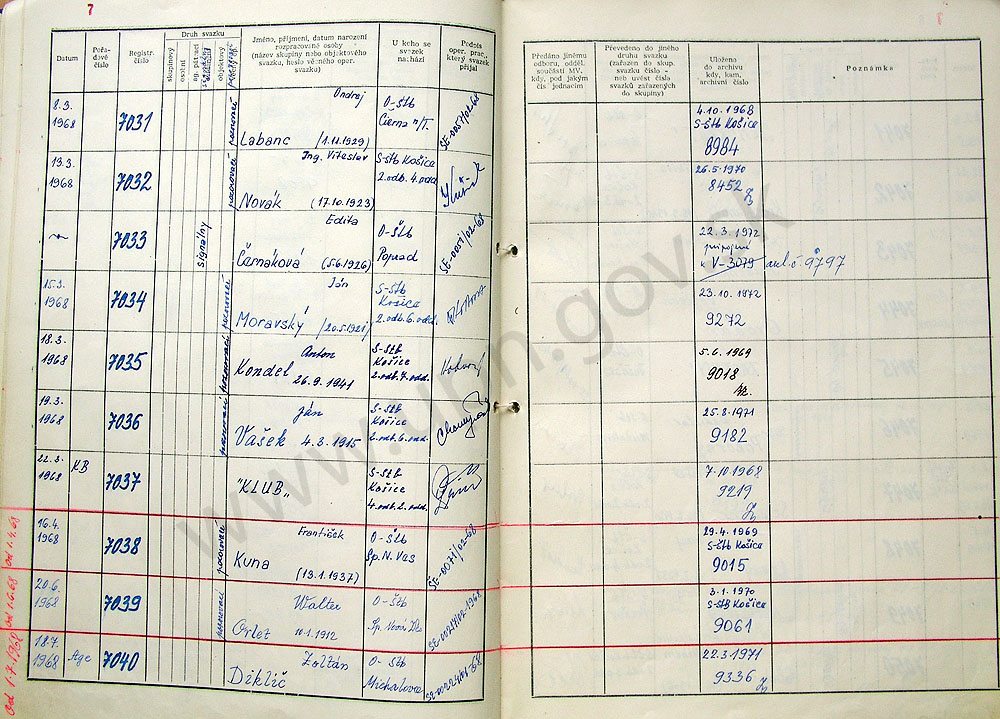 7
Datum
Pořadové číslo
Registr. číslo
Druh svazku
skupinový
osobní
ag. pátrací
objektový
Jméno, příjmení, datum narození
rozpracované osoby
(název skupiny nebo objektového
svazku, heslo věcného oper.
svazku)
U koho se
svazek
nachází
Podpis
oper. prac.,
který svazek
přijal
Předáno jinému
odboru, odděl.
součásti MV,
kdy, pod jakým
čís. jednacím
Převedeno do jiného
druhu svazku
(zařazen do skup.
svazku číslo -
neb uvést číslo
svazků zařazených
do skupiny)
Uloženo
do archivu
kdy, kam,
archivní číslo
Poznámka
8.3.
1968
7031
pozorovací
Ondrej
Labanc (1.11.1929)
O-ŠtB
Čierna n/T.
SE-0057/02-68
4.10.1968
S-štb Košice
8984
13.3.
1968
7032
pozorovací
Ing. Víteslav
Novák (17.10.1923)
S-štb Košice
2.odb. 4.odd.
26.5.1970
8452
7033
signálny
Edita
Černáková (5.6.1926)
O-Štb
Poprad
22.3.1972
pripojené
k V-3079 arch.č 9797
15.3.
1968
7034
pozorovací
Ján
Moravský (20.5.1921)
S-štb
Košice
2.odb.6.odd.
23.10.1972
9272
18.3.
1968
7035
pozorovací
Anton
Kondel 26.9.1941
S-štb
Košice
2.odb.7.odd.
5.6.1969
9018
19.3.
1968
7036
pozorovací
Ján
Vašek 4.3.1915
S-štb
Košice
2.odb.6.odd.
25.8.1971
9182
22.3.
1968
KB
7037
"KLUB„
S-štb
Košice
4.odb.2.odd.
7.10.1968
9219
16.4.
1968
7038
pozorovací
František
Kuna (13.1.1937)
O-štb
Sp.N.Ves
SE-0071/02-68
29.4.1969
S-štb Košice
9015
20.6.
1968
7039
pozorovací
Walter
Orlet 10.1.1912
O-štb
Sp. Nová Ves
3.1.1970
S-štB Košice
9061
18.7.
1968
Age
7040
Zoltán
Diklič
O-štb
Michalovce
22.3.1971
9336
od 1.7.1968
od 1.6.68
od 1.4.68
www.upn.gov.sk